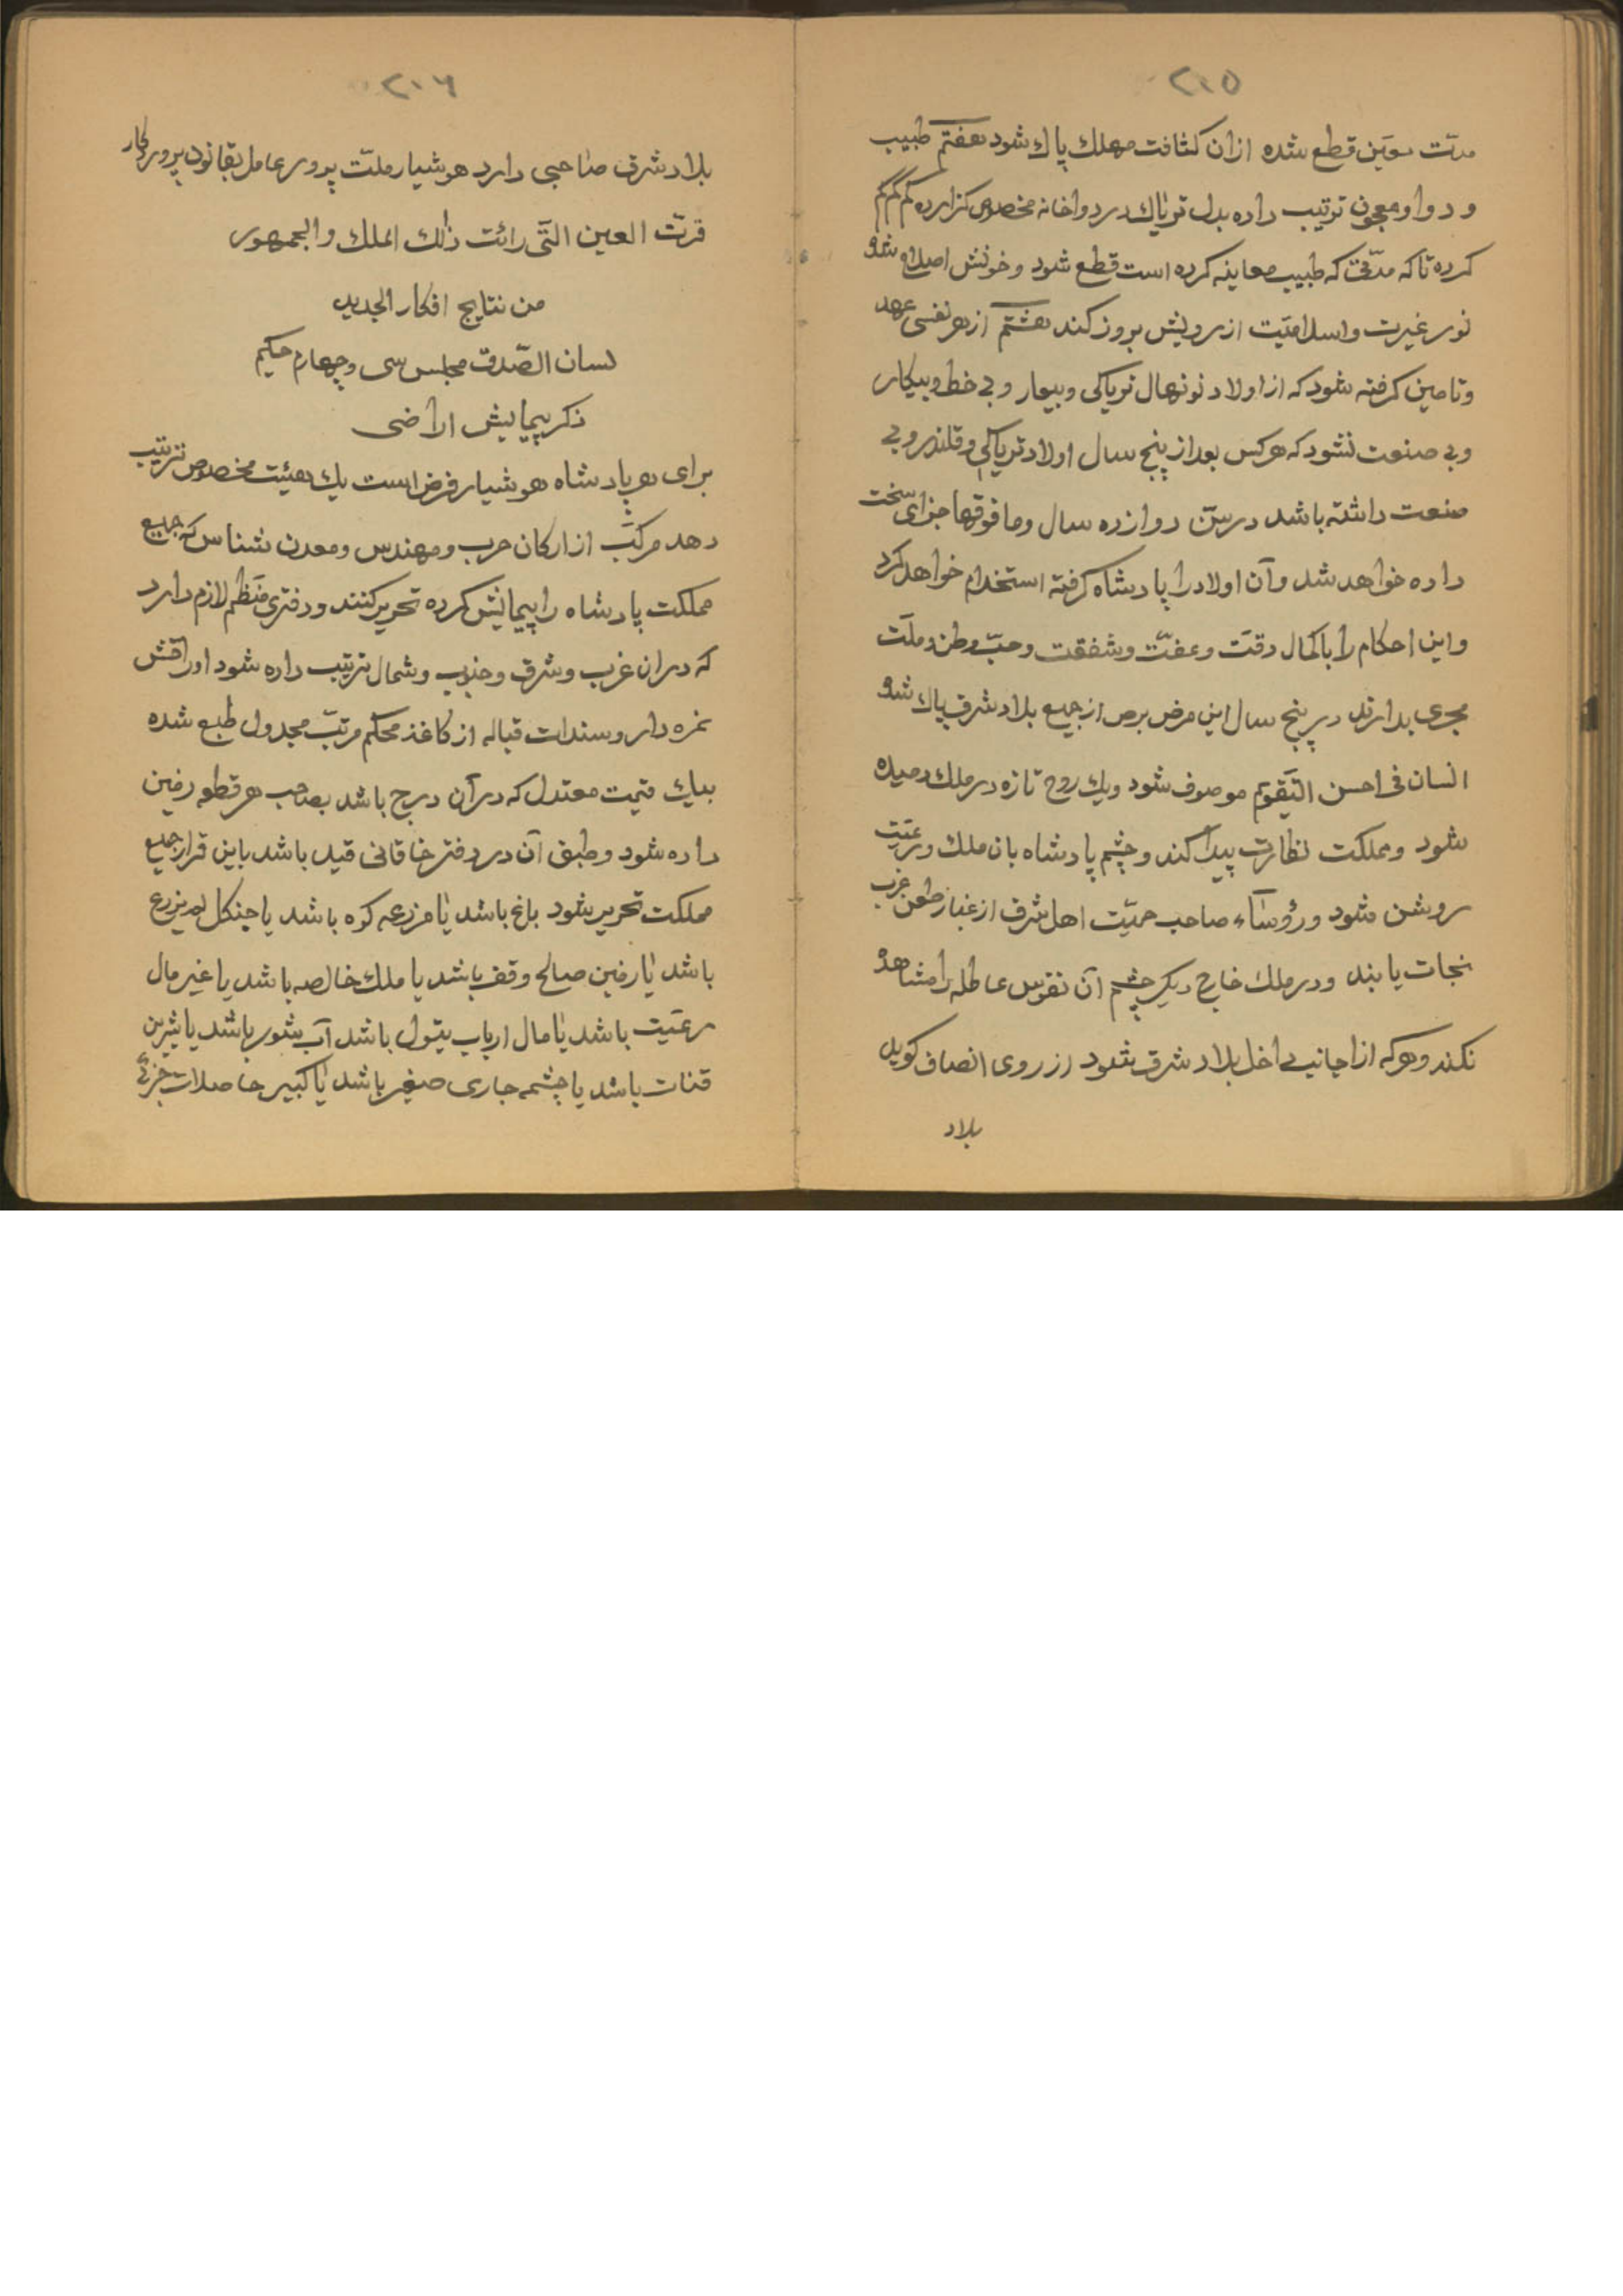 ۲۰۵
مدّت معیّن قطع شده ازان کثافت مهلك پاك شود هفتم طبیب
و دوا و معجون ترتیب داده بدل تریاك در دواخانه مخصوص گزارده کم کم
کرده تا که مدّتی که طبیب معاینه کرده است قطع شود و خونش اصلاح شود
نور غیرت و اسلامیّت از رویش بروز کند هشتم از هر نفسی عهد
و تامین گرفته شود که از اولاد نونهال تریاکی و بیعار و بی خط و بیکار
و بی صنعت نشود که هرکس بعد از پنج سال اولاد تریاکی و قلندر و بی
صنعت داشته باشد در سنّ دوازده سال و مافوقها جزای سخت
داده خواهد شد و آن اولاد را پادشاه گرفته استخدام خواهد کرد
و این احکام را باکمال دقّت و عفّت و شفقت و حبّ وطن و ملّت
مجری بدارند در پنج سال این مرض برص از جمیع بلاد شرق پاك شود
انسان فی احسن التّقویم موصوف شود و یك روح تازه در ملك دمیده
شود و مملکت نظارت پیدا کند و چشم پادشاه بان ملك و رعیّت
روشن شود و رؤساء صاحب حمیّت اهل شرق از غبار طعن غرب
نجات یابند و در ملك خارج دیگر چشم آن نفوس عاطله را مشاهده
نکند و هرکه از اجانب داخل بلاد شرق شود از روی انصاف گوید
بلاد
۲۰۶
بلاد شرق صاحبی دارد هوشیار ملّت پرور عامل بقانون پرورگار
قرّت العین الّتی رائت ذلك الملك و الجمهور
من نتایج افکار الجدید
لسان الصّدق مجلس سی و چهارم حکیم
ذکر پیمایش اراضی
برای هر پادشاه هوشیار فرض است یك هیئت مخصوص ترتیب
دهد مرکّب از ارکان حرب و مهندس و معدن شناس که جمیع
مملکت پادشاه را پیمایش کرده تحریر کنند و دفتری منظّم لازم دارد
که دران غرب و شرق و جنوب و شمال ترتیب داده شود اوراقش
نمره دار و سندات قباله از کاغذ محکم مرتّب مجدول طبع شده
بیك قیمت معتدل که در آن درج باشد بصاحب هر قطعه زمین
داده شود و طبق آن در دفتر خاقانی قید باشد باین قرار جمیع
مملکت تحریر شود باغ باشد یا مزرعه کوه باشد یا جنگل لم یزرع
باشد یا زمین صالح وقف باشد یا ملك خالصه باشد یا غیر مال
رعیّت باشد یا مال ارباب یتول باشد آب شور باشد یا شیرین
قنات باشد یا چشمه جاری صغیر باشد یا کبیر حاصلات جزئی